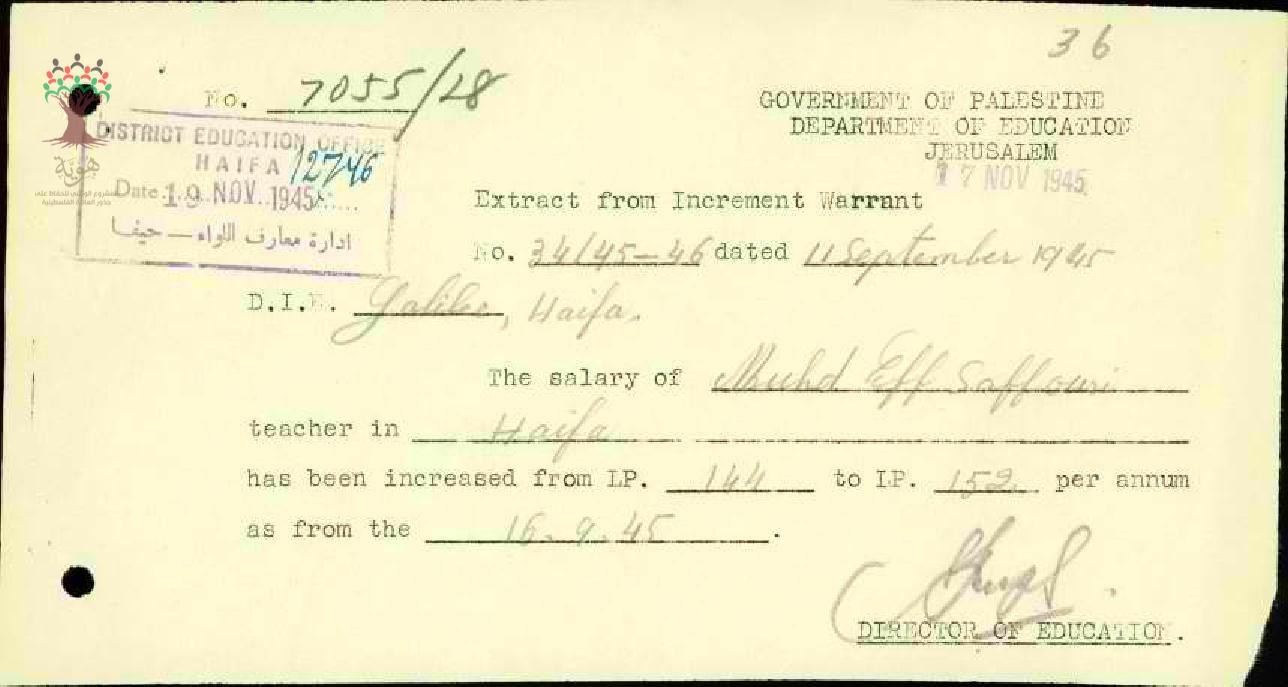 36
No. 7055/28
GOVERNMENT OF PALESTINE
DEPARTMENT OF EDUCATION
JERUSALEM
17 NOV 1945
DISTRICT EDUCATION OFFICE
HAIFA 12746
Date 19 NOV. 1945
ادارة معارف اللواء — حيفا
هوية
Extract from Increment Warrant
No. 34/45-46 dated 11 September 1945
D.I.E. Galilee, Haifa.
The salary of Muhd Eff Saffouri
teacher in Haifa
has been increased from LP. 144 to LP. 152 per annum
as from the 16.9.45.
DIRECTOR OF EDUCATION.